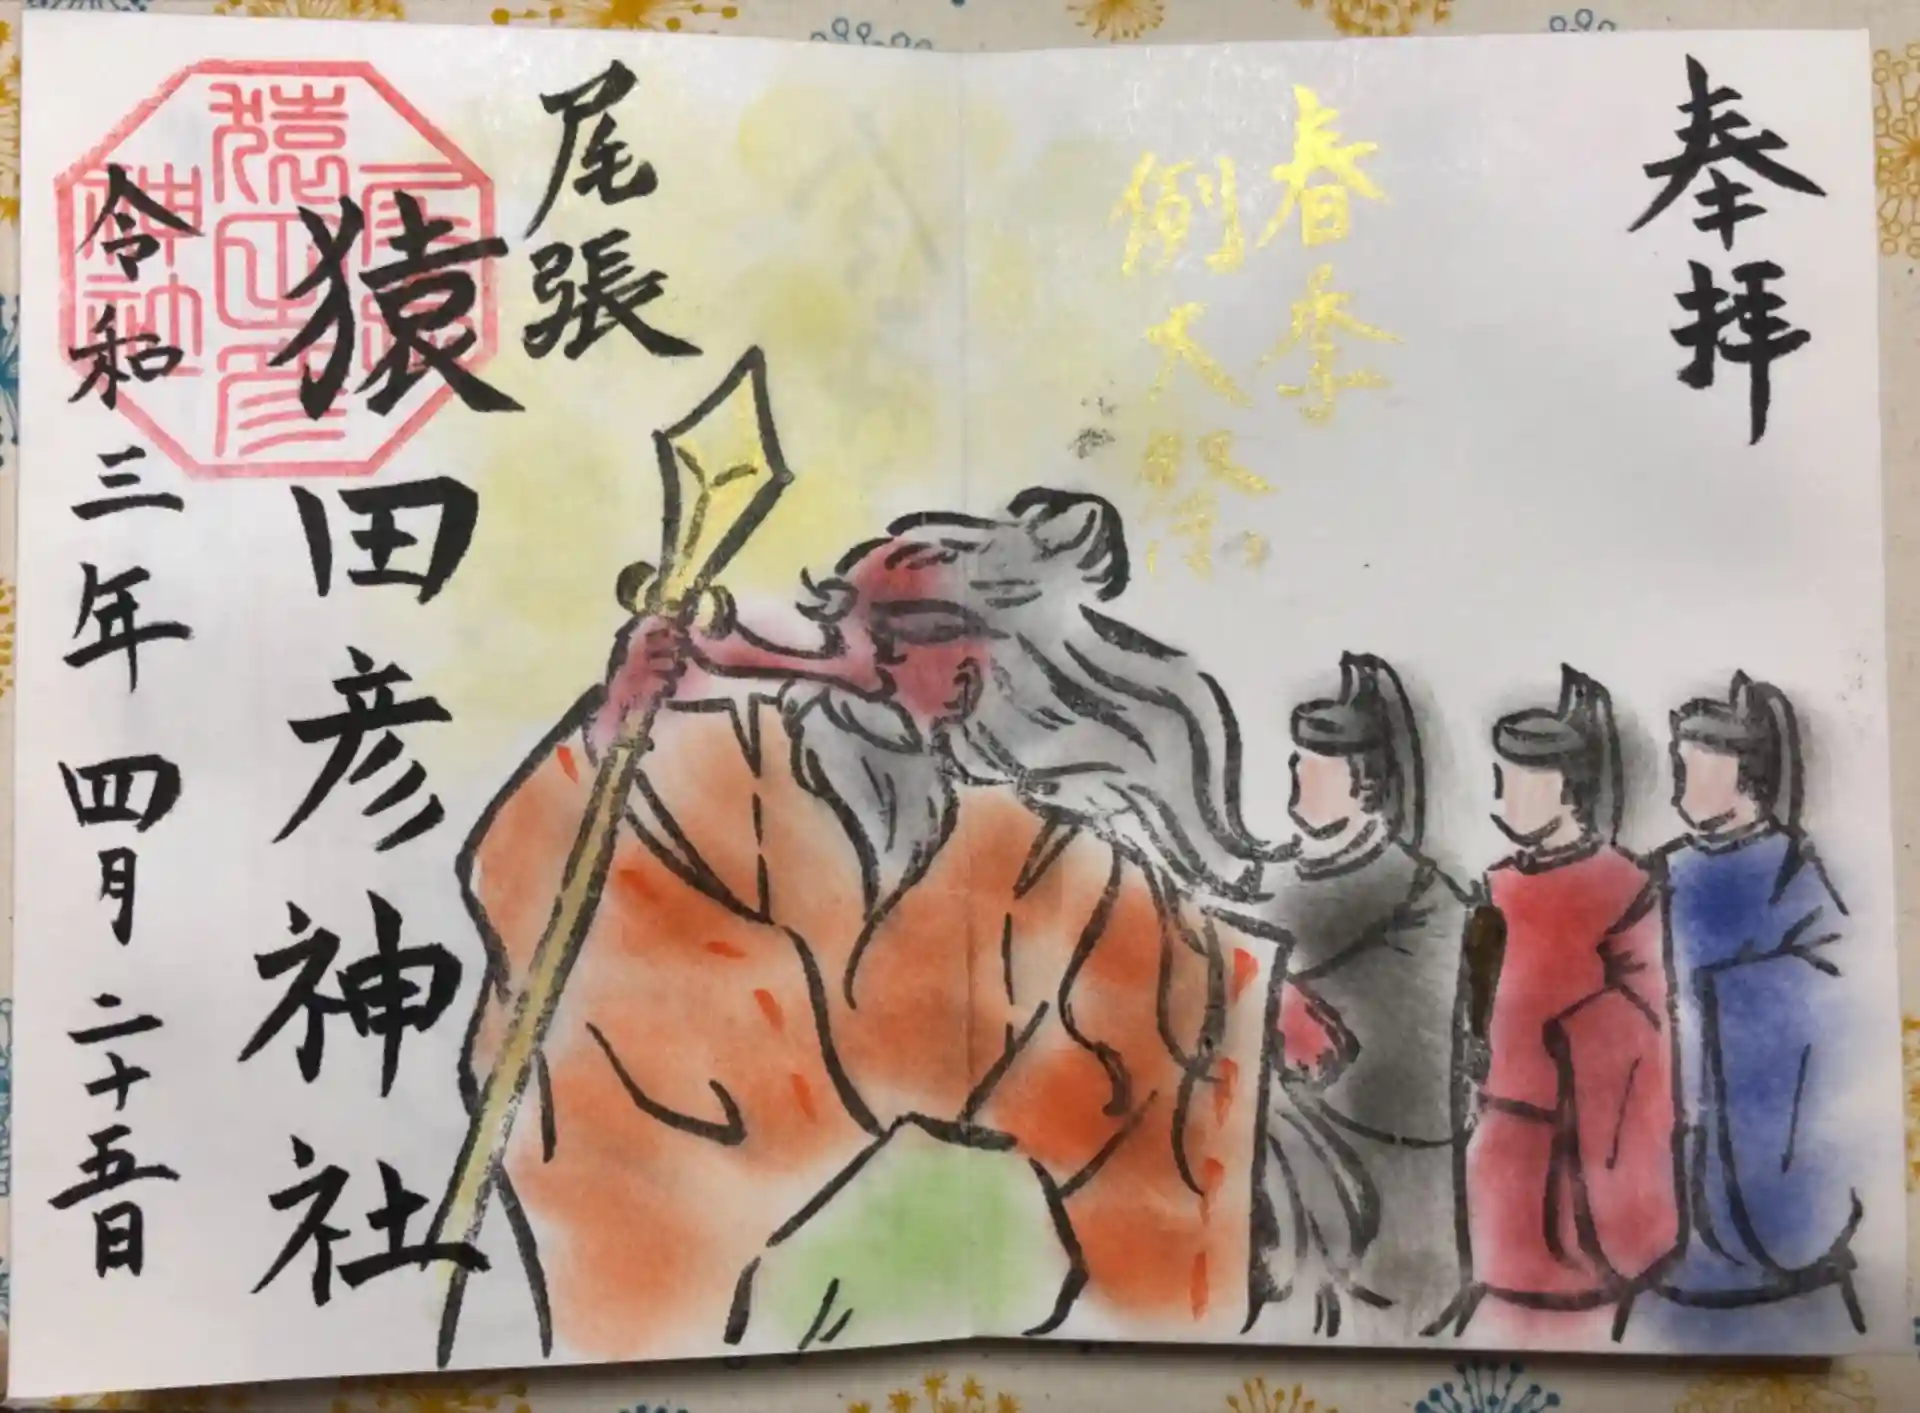 奉拝
春季
例大祭
尾張
猿田彦神社
令和三年四月二十五日